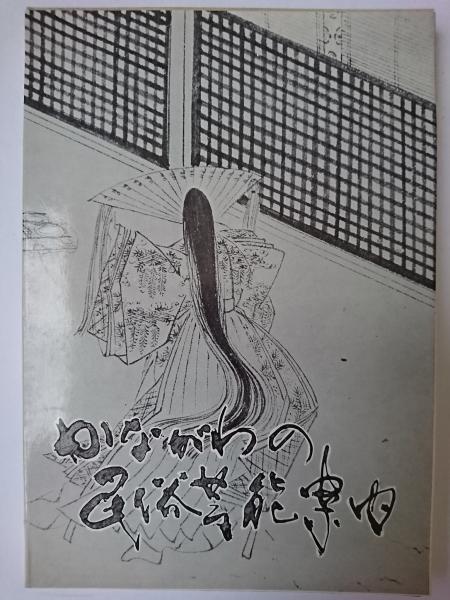 かながわの
民俗芸能案内